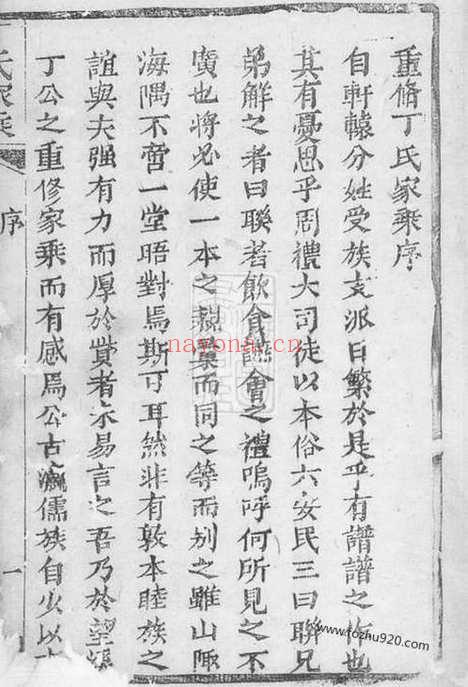 重脩丁氏家乘序
自軒轅分姓受族支派日繁於是乎有譜譜之作也
其有憂思乎周禮大司徒以本俗六安民三曰聯兄
弟解之者曰聯者飲食讌會之禮嗚呼何所見之不
廣也將必使一本之親羣而同之等而别之雖山陬
海隅不啻一堂晤對焉斯可耳然非有敦本睦族之
誼與夫强有力而厚於貲者未易言之吾乃於望溪
丁公之重修家乘而有感焉公古瀛儒族自少以
氏家乘
序
一
nayona.cn
www.fozhu920.com